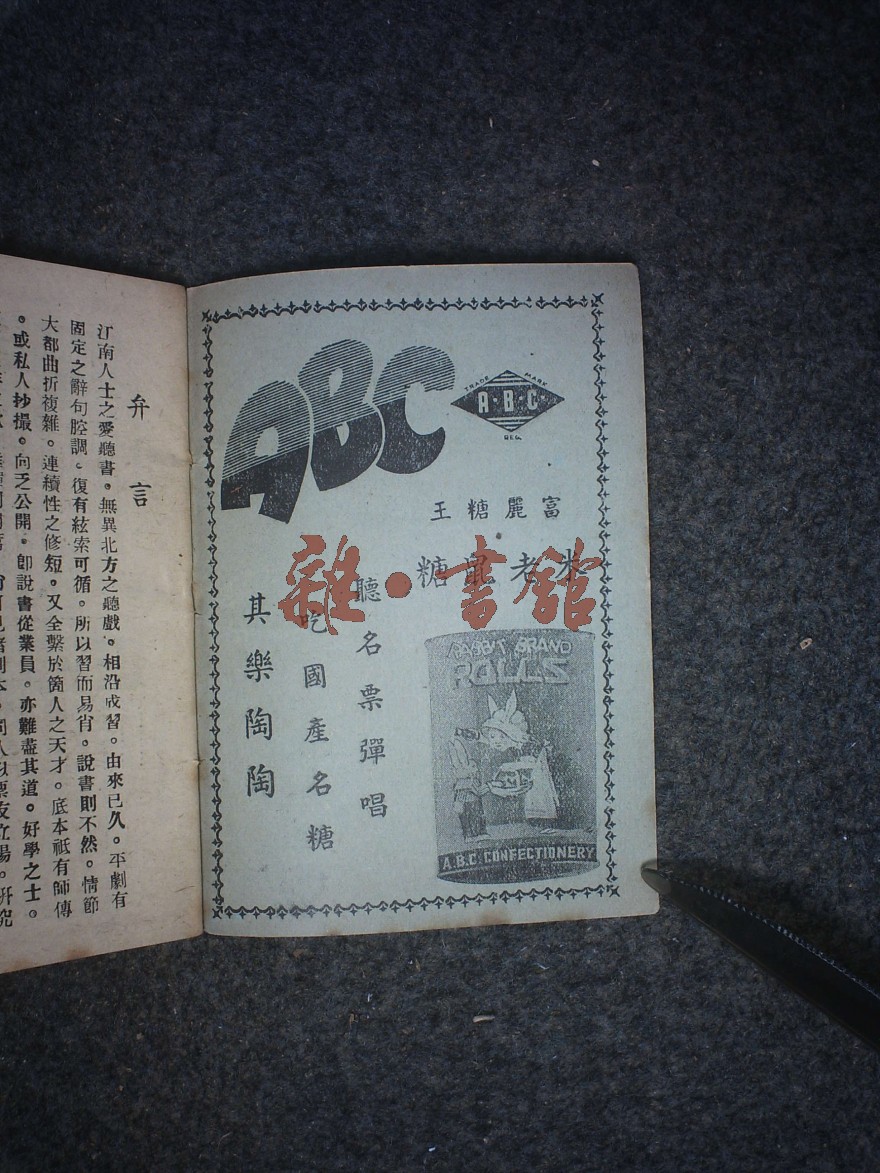 弁言
江南人士之愛聽書。無異北方之聽戲。相沿成習。由來已久。平劇有
固定之辭句腔調。復有絃索可循。所以習而易肖。說書則不然。情節
大都曲折複雜。連續性之修短。又全繫於箇人之天才。底本祇有師傳
。或私人抄撮。向乏公開。卽說書從業員。亦難盡其道。好學之士。
ABC
TRADE MARK
A·B·C·
REG.
富麗糖王
米老鼠糖
聽名票彈唱
吃國產名糖
其樂陶陶
RABBIT BRAND
ROLLS
A.B.C. CONFECTIONERY
雜·書館